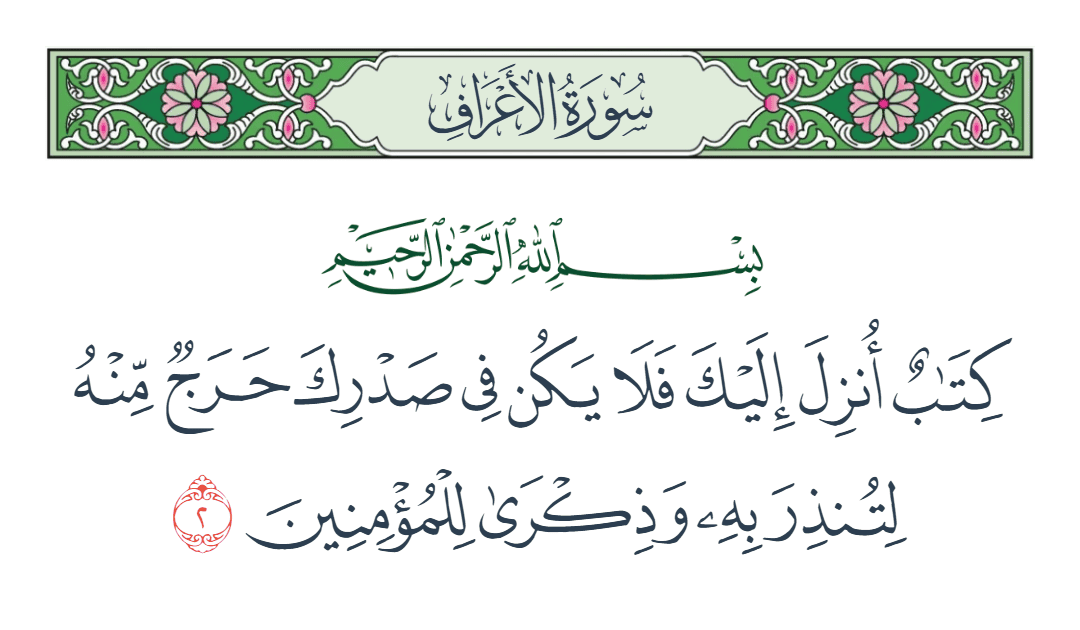 سُورَةُ الأَعْرَافِ
بِسْمِ ٱللَّهِ ٱلرَّحْمَٰنِ ٱلرَّحِيمِ
كِتَٰبٌ أُنزِلَ إِلَيْكَ فَلَا يَكُن فِى صَدْرِكَ حَرَجٌ مِّنْهُ
لِتُنذِرَ بِهِۦ وَذِكْرَىٰ لِلْمُؤْمِنِينَ ٢